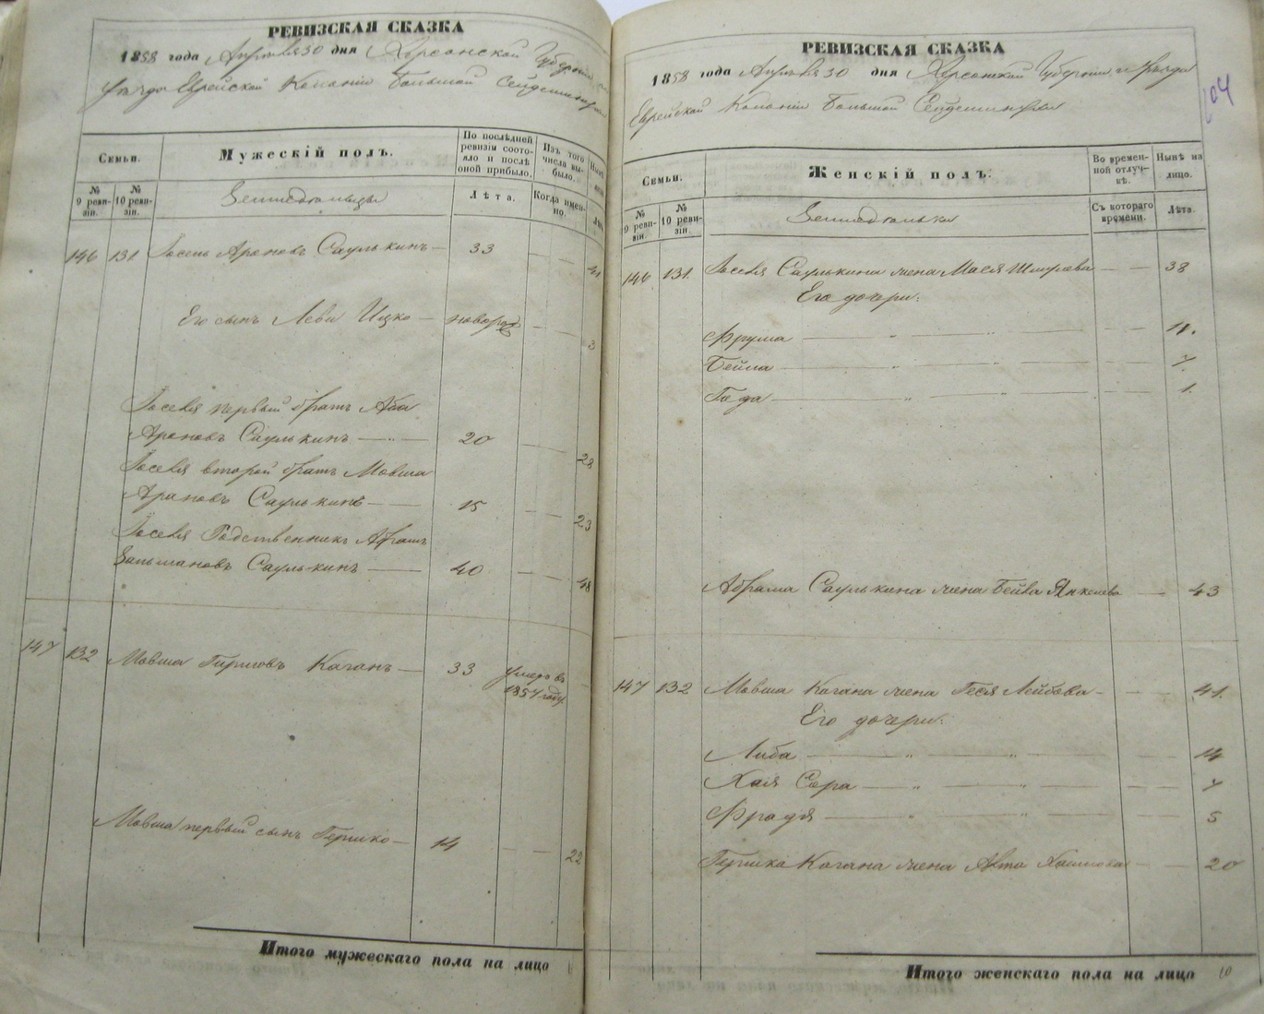 РЕВИЗСКАЯ СКАЗКА
1858 года Апреля 30 дня Херсонской Губернии
уезда Еврейской Колонии Большой Сейдеминухи
Семьи.
Мужескій полъ.
По послѣдней ревизіи состояло и послѣ оной прибыло.
Изъ того числа выбыло.
№ 9 ревизіи.
№ 10 ревизіи.
Земледельцы
Лѣта.
Когда именно.
146 131 Іосель Ароновъ Саулькинъ 33 41
Его сынъ Леви Ицко новорож 3
Іоселя первый братъ Аба
Ароновъ Саулькинъ 20 28
Іоселя второй братъ Мовша
Ароновъ Саулькинъ 15 23
Іоселя Родственникъ Абрамъ
Зальмановъ Саулькинъ 40 48
147 132 Мовша Гершовъ Каганъ 33 умеръ въ 1857 году
Мовша первый сынъ Гершко 14 22
Итого мужескаго пола на лицо
РЕВИЗСКАЯ СКАЗКА
104
1858 года Апреля 30 дня Херсонской Губерніи и уезда
Еврейской Колоніи Большой Сейдеминухи
Семьи.
Женскій полъ.
Во временной отлучкѣ.
Нынѣ на лицо.
№ 9 ревизіи.
№ 10 ревизіи.
Земледельки
Съ котораго времени.
Лѣта.
146 131 Іоселя Саулькина жена Мася Шмулева 38
Его дочери:
Фрума 11.
Бейла 7.
Года 1.
Абрама Саулькина жена Бейла Янкелева 43
147 132 Мовша Кагана жена Песя Лейбова 41.
Его дочери:
Либа 14
Хая Сора 7
Фрадя 5
Гершка Кагана жена Хаимова 20
Итого женскаго пола на лицо 10